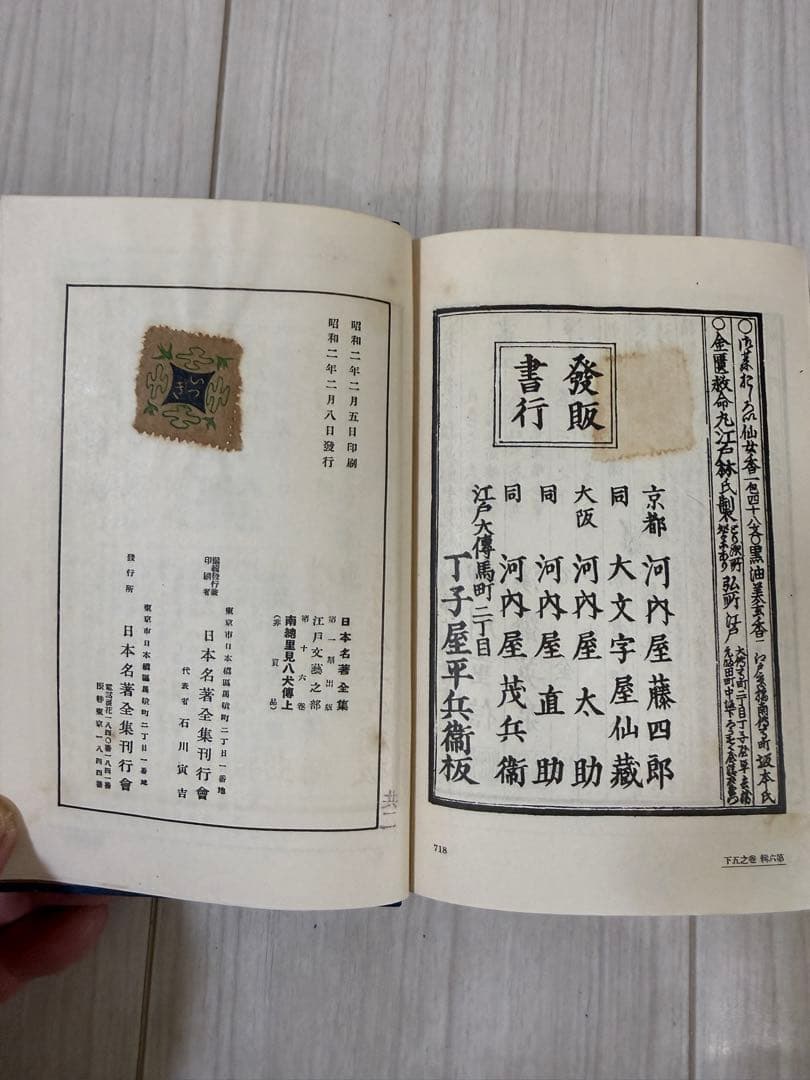 ○御茶おしろい仙女香一包四十八文○黒油美玄香一江戸京橋南横町坂本氏
○金匱救命丸江戸林氏製
弘所江戸
大傳馬町二丁目丁子屋平兵衞
發販
書行
京都 河内屋藤四郎
同 大文字屋仙藏
大阪 河内屋太助
同 河内屋直助
同 河内屋茂兵衞
江戸大傳馬町二丁目
丁子屋平兵衞板
718
第六輯 卷之五下
昭和二年二月五日印刷
昭和二年二月八日發行
いつぎ
日本名著全集
第一期出版
江戸文藝之部
第十六卷
南總里見八犬傳上
(非賣品)
編輯發行兼
印刷者
東京市日本橋區馬喰町二丁目一番地
日本名著全集刊行會
代表者 石川寅吉
東京市日本橋區馬喰町二丁目一番地
發行所 日本名著全集刊行會
電話浪花一八四〇番一八四一番
振替東京一八四四番
共二